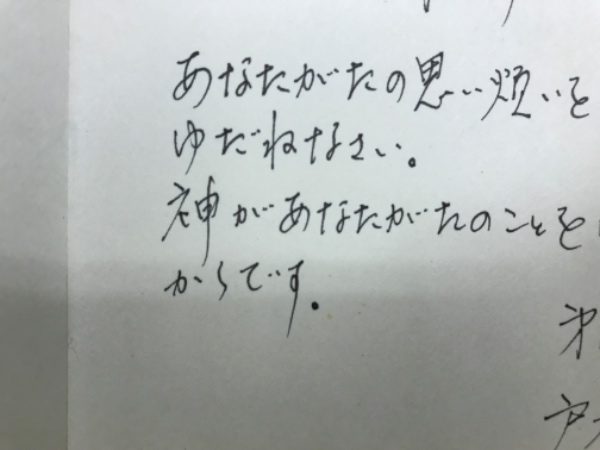 あなたがたの思い煩いを
ゆだねなさい。
神があなたがたのことを
からです。